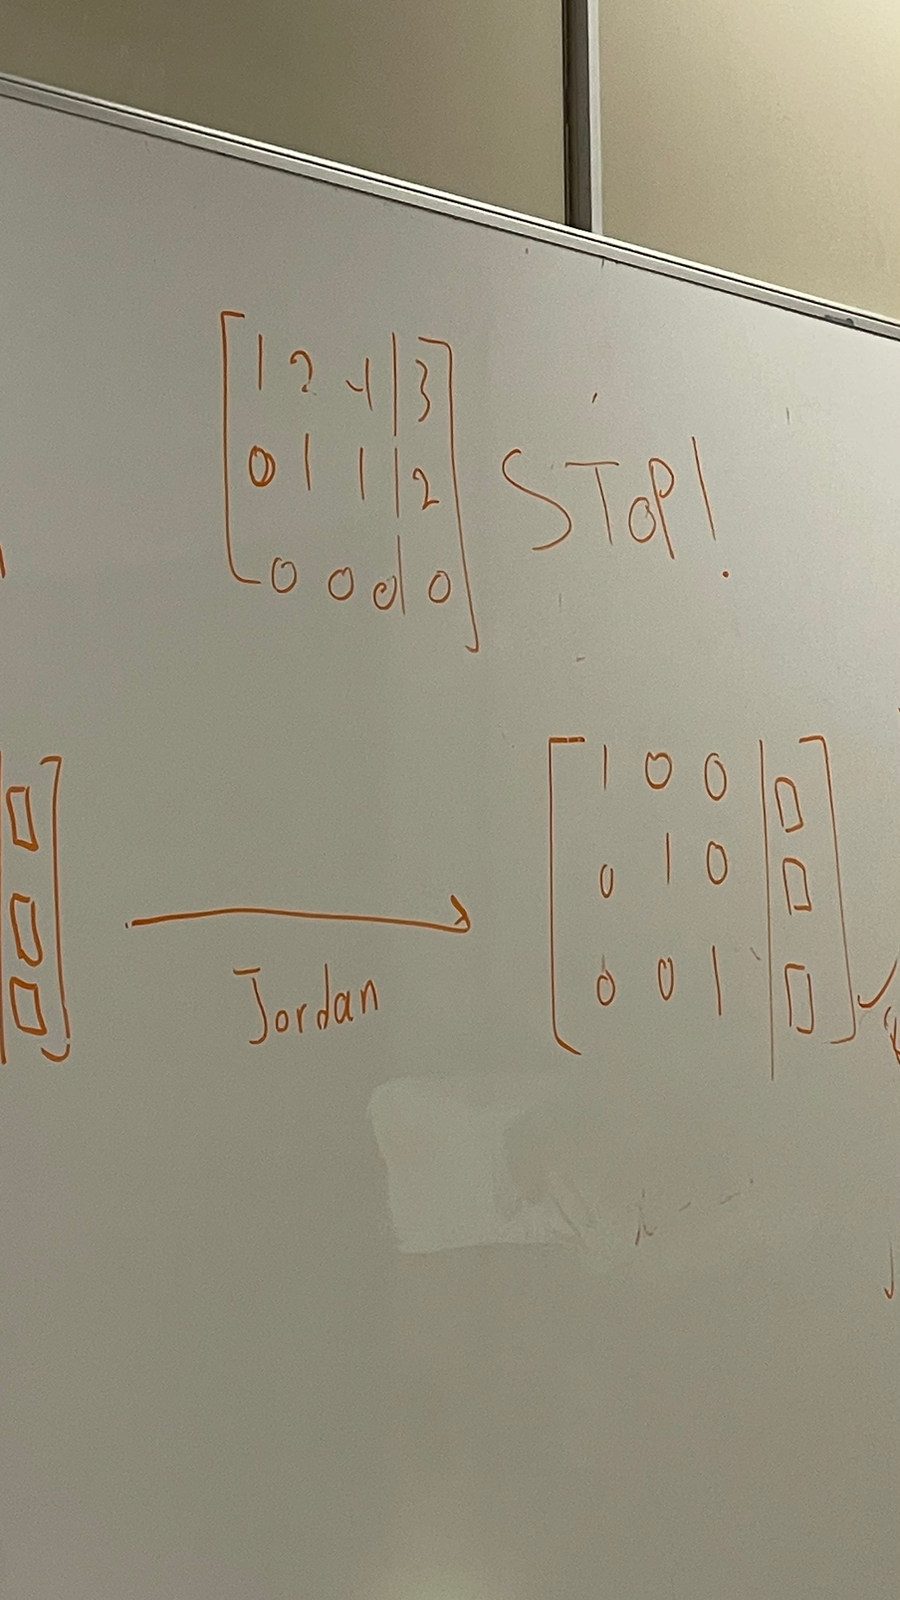 1 2 -1 | 3
0 1 1 | 2
0 0 0 | 0
STOP!
Jordan
1 0 0 | □
0 1 0 | □
0 0 1 | □